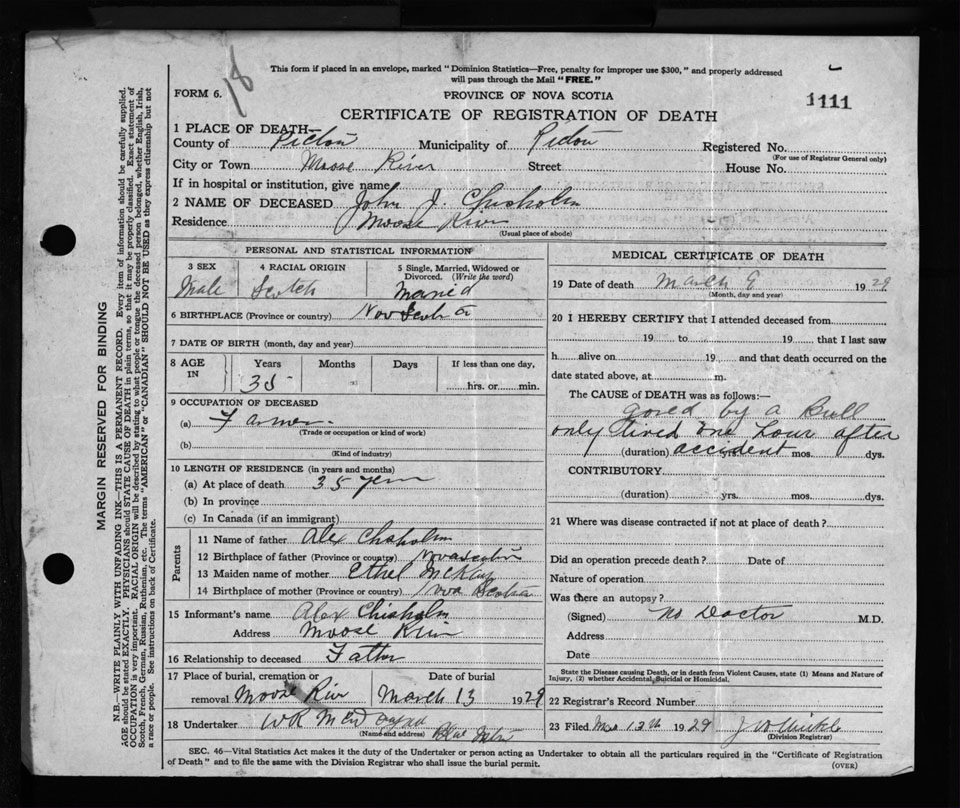 18
This form if placed in an envelope, marked "Dominion Statistics—Free, penalty for improper use $300," and properly addressed
will pass through the Mail "FREE."
FORM 6.
PROVINCE OF NOVA SCOTIA
1111
CERTIFICATE OF REGISTRATION OF DEATH
1 PLACE OF DEATH—
County of Pictou Municipality of Pictou Registered No.
(For use of Registrar General only)
City or Town Moose River Street House No.
If in hospital or institution, give name
2 NAME OF DECEASED John J. Chisholm
Residence Moose River
(Usual place of abode)
PERSONAL AND STATISTICAL INFORMATION
3 SEX 4 RACIAL ORIGIN 5 Single, Married, Widowed or
Divorced. (Write the word)
Male Scotch Married
6 BIRTHPLACE (Province or country) Nova Scotia
7 DATE OF BIRTH (month, day and year)
8 AGE Years Months Days If less than one day,
IN 35 hrs. or min.
9 OCCUPATION OF DECEASED
(a) Farmer
(Trade or occupation or kind of work)
(b)
(Kind of industry)
10 LENGTH OF RESIDENCE (in years and months)
(a) At place of death 35 years
(b) In province
(c) In Canada (if an immigrant)
Parents
11 Name of father Alex Chisholm
12 Birthplace of father (Province or country) Nova Scotia
13 Maiden name of mother Ethel McKay
14 Birthplace of mother (Province or country) Nova Scotia
15 Informant's name Alex Chisholm
Address Moose River
16 Relationship to deceased Father
17 Place of burial, cremation or Date of burial
removal Moose River March 13 1929
18 Undertaker W R
(Name and address) Blue
MEDICAL CERTIFICATE OF DEATH
19 Date of death March 1929
(Month, day and year)
20 I HEREBY CERTIFY that I attended deceased from
19 to 19 that I last saw
h alive on 19 and that death occurred on the
date stated above, at m.
The CAUSE of DEATH was as follows:—
gored by a Bull
only lived one hour after
(duration) accident mos. dys.
CONTRIBUTORY
(duration) yrs. mos. dys.
21 Where was disease contracted if not at place of death?
Did an operation precede death? Date of
Nature of operation
Was there an autopsy?
(Signed) No Doctor M.D.
Address
Date
State the Disease causing Death, or in death from Violent Causes, state (1) Means and Nature of
Injury, (2) whether Accidental, Suicidal or Homicidal.
22 Registrar's Record Number
23 Filed Mar 13th 1929
(Division Registrar)
SEC. 46—Vital Statistics Act makes it the duty of the Undertaker or person acting as Undertaker to obtain all the particulars required in the "Certificate of Registration
of Death" and to file the same with the Division Registrar who shall issue the burial permit.
(OVER)
MARGIN RESERVED FOR BINDING
N.B.—WRITE PLAINLY WITH UNFADING INK—THIS IS A PERMANENT RECORD. Every item of information should be carefully supplied.
AGE should be stated EXACTLY. PHYSICIANS should STATE CAUSE OF DEATH in plain terms, so that it may be properly classified. Exact statement of
OCCUPATION is very important. RACIAL ORIGIN will be described by stating to what people or tongue the deceased person belonged, whether English, Irish,
Scotch, French, German, Russian, Ruthenian, etc. The terms "AMERICAN" or "CANADIAN" SHOULD NOT BE USED as they express citizenship but not
a race or people. See instructions on back of Certificate.